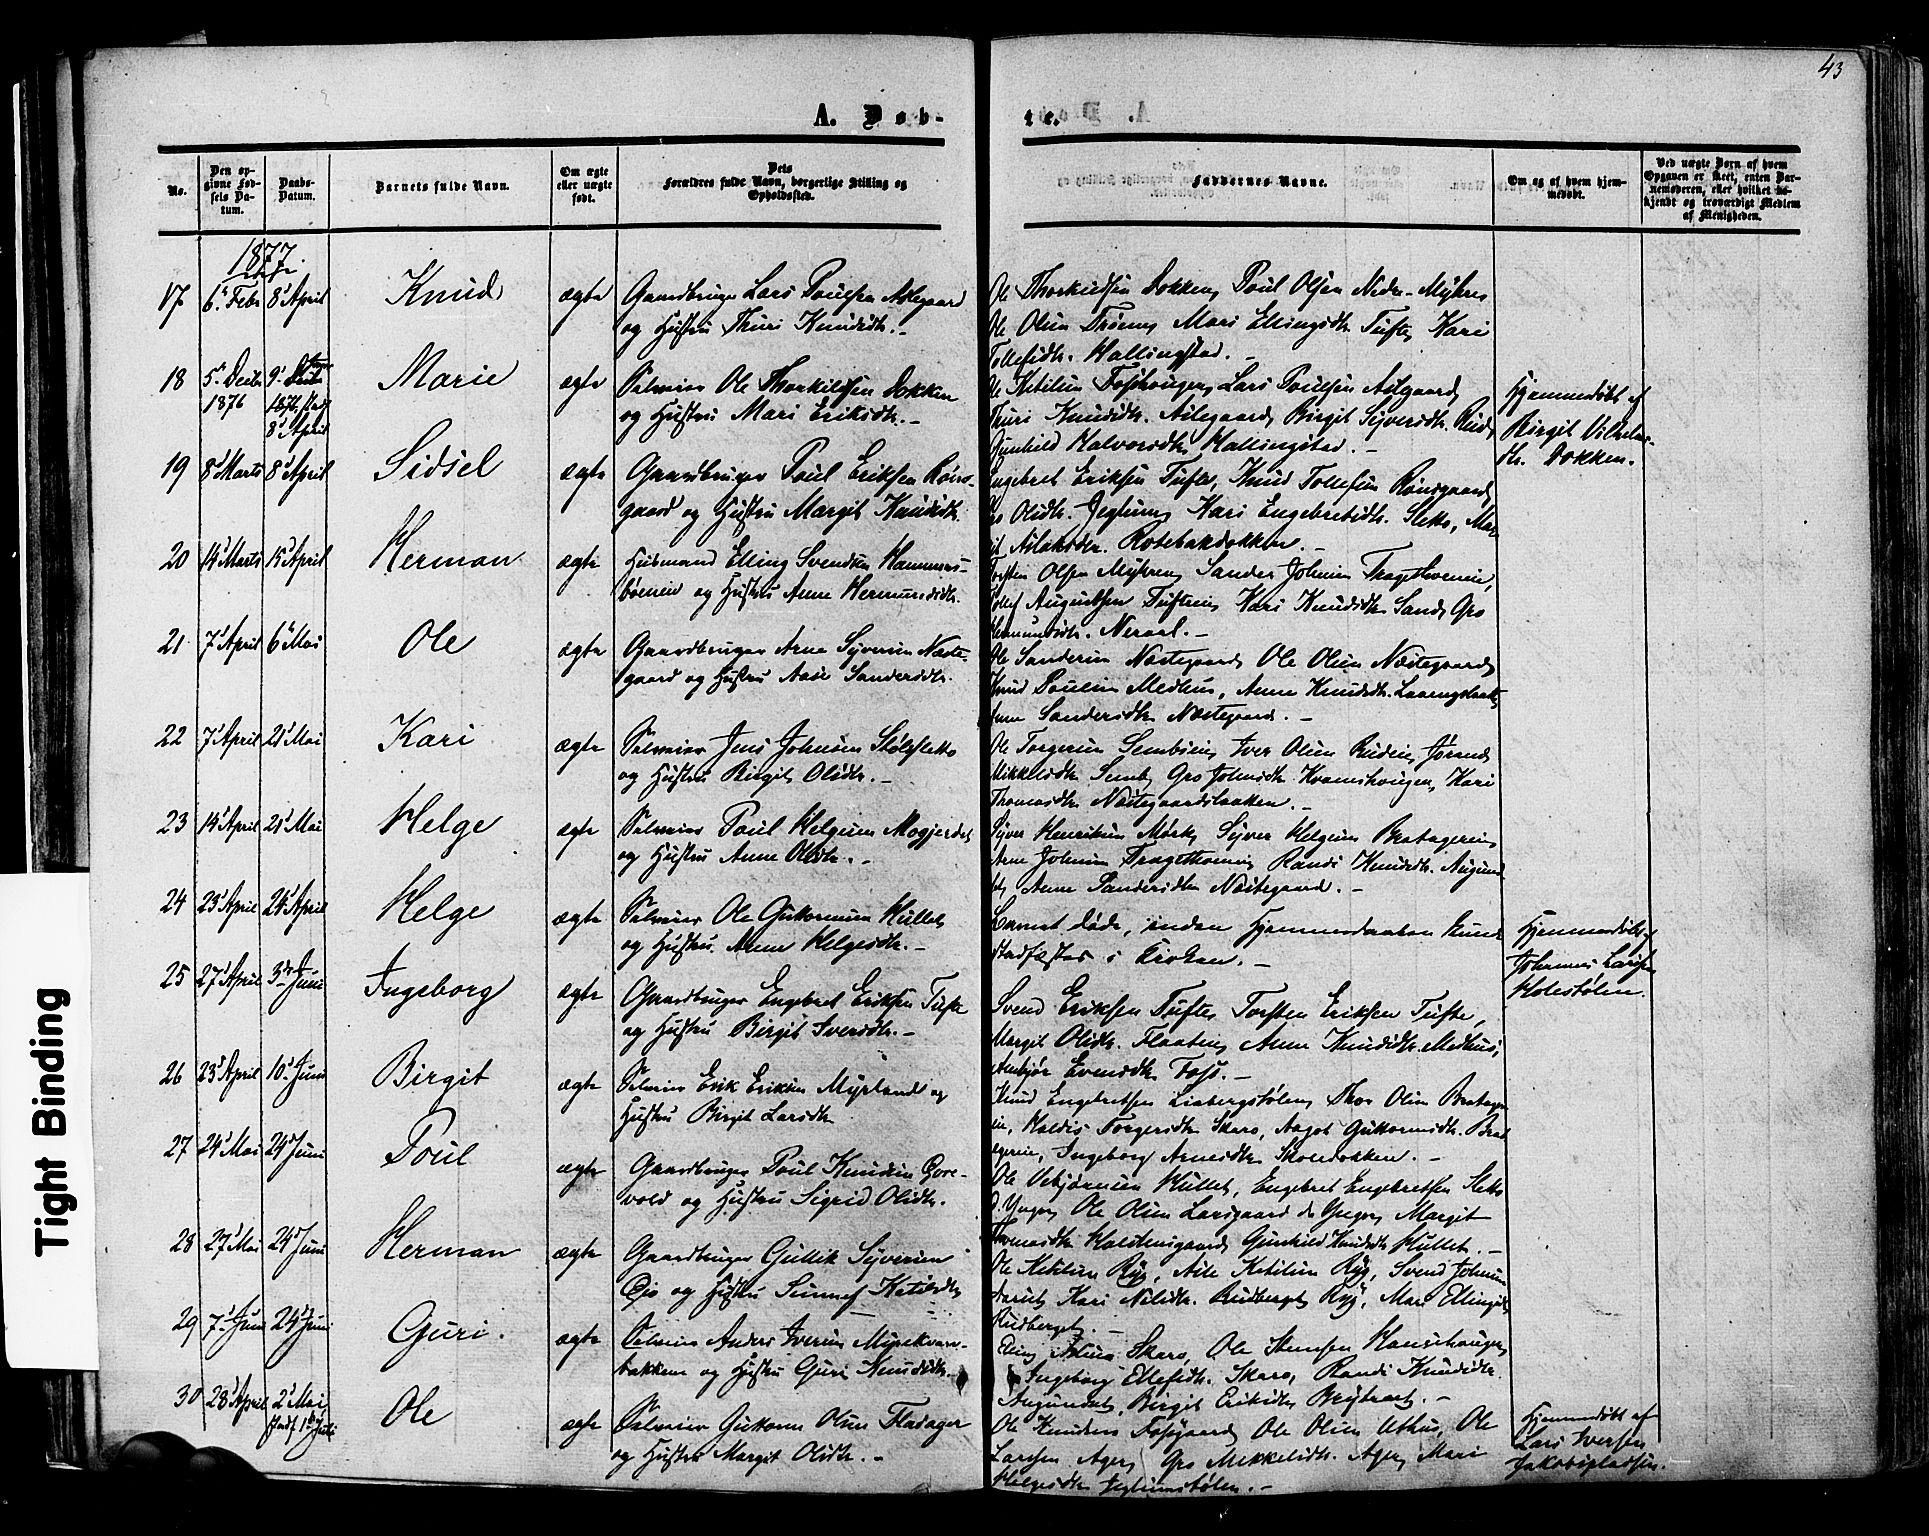 43
A. Døb-
te.
No.
Den op-
givne Fød-
sels Da-
tum.
Daabs-
Datum.
Barnets fulde Navn.
Om ægte
eller uægte
født.
Dets
Forældres fulde Navn, borgerlige Stilling og
Opholdssted.
Faddernes Navne.
Om og af hvem hjem-
medøbt.
Ved uægte Børn af hvem
Opgaven er skeet, enten Bar-
nemoderen, eller hvilket be-
kjendt og troværdigt Medlem
af Menigheden.
1877.
17 6te Febr 8de April Knud ægte Gaardbruger Lars Poulsen Ailegaard
og Hustru Thuri Knudsdtr. –
Ole Thorkildsen Dokken, Poul Olsen Nedre-Myhre
Ole Olsen Mari Ellingsdtr. Tufte, Kari
Tollefsdtr. Hallingstad. –
18 5 Decbr 1876 9 1876 stadf 8 April Marie ægte Selveier Ole Thorkildsen Dokken
og Hustru Mari Eriksdtr. –
Ole Ketilsen Lars Poulsen Ailgaard,
Thuri Knudsdtr. Ailegaard, Birgit Syversdtr. Rud,
Gunhild Halvorsdtr. Hallingstad. –
Hjemmedøbt af
Birgit
dtr. Dokken.
19 8 Marts 8 April Sidsel ægte Gaardbruger Poul Eriksen Røns-
gaard og Hustru Margit Knudsdtr.
Engebret Eriksen Tufte, Knud Tollefsen Rønsgaard,
Gro Olsdtr. Jeglum, Kari Engebretsdtr. Sletto, Mar-
git
20 14 Marts 15 April Herman ægte Husmand Elling Svendsen Hammers-
bøeneie og Hustru Anne Hermundsdtr.
Torsten Olsen Myhren, Sander Johnsen Tragethoneie,
Tollef Augundsen Kari Knudsdtr. Sand, Gro
Hermundsdtr. Neraal. –
21 7 April 6te Mai Ole ægte Gaardbruger Arne Syversen Næste-
gaard og Hustru Aase Sandersdtr.
Ole Sandersen Næstegaard, Ole Olsen Næstegaard,
Knud Poulsen Medhus, Anne Knudsdtr.
Anne Sandersdtr. Næstegaard. –
22 7 April 21 Mai Kari ægte Selveier Jens Johnsen Stølsletto
og Hustru Birgit Olsdtr. –
Ole Torgersen Iver Olsen Jørand
Mikkelsdtr. Semb, Gro Johnsdtr. Kari
Thomasdtr. Næstegaardsbakken. –
23 14 April 21 Mai Helge ægte Selveier Poul Helgesen Mogjerdet
og Hustru Anne Olsdtr. –
Syver Henriksen Mørk, Syver Helgesen
Arne Johnsen Randi Knudsdtr.
Anne Sandersdtr. Næstegaard. –
24 23 April 24 April Helge ægte Selveier Ole Guttormsen Hullet
og Hustru Anne Helgesdtr. –
Barnet døde, inden Hjemmedaaben kunde
stadfæstes i Kirken. –
Hjemmedøbt af
Johannes Larsen
Holestølen.
25 27 April 3die Juni Ingeborg ægte Gaardbruger Engebret Eriksen Tufte
og Hustru Birgit Iversdtr. –
Svend Eriksen Tufte, Torsten Eriksen Tufte,
Margit Olsdtr. Flaaten, Anne Knudsdtr. Medhus,
Ambjør Evensdtr. Foss. –
26 23 April 10 Juni Birgit ægte Selveier Erik Eriksen Myrland og
Hustru Birgit Larsdtr.
Knud Engebretsen Liabergstølen, Thor Olsen
Haldis Torgersdtr. Skaro, Aagot Guttormsdtr.
Ingeborg Arnesdtr. Skoledokken. –
27 24 Mai 24 Juni Poul ægte Gaardbruger Poul Knudsen
vold og Hustru Sigrid Olsdtr.
Ole Vebjørnsen Hullet, Engebret Engebretsen Sletto
d. Yngre, Ole Olsen Larsgaard d. Yngre, Margit
Thomasdtr. Gunhild Knudsdtr. Hullet. –
28 27 Mai 24 Juni Herman ægte Gaardbruger Gullik Syversen
og Hustru Sunnef Ketilsdtr.
Ole Ketilsen Ryg, Aile Ketilsen Ryg, Svend Johnsen
Kari Nilsdtr. Rudberget, Ryg, Mari Ellingsdtr.
Rudberget. –
29 7 Juni 24 Juni Guri. ægte Selveier Anders Iversen Myrekvern-
bakken og Hustru Guri Knudsdtr.
Skaro, Ole
Ingeborg Ellefsdtr. Skaro, Randi Knudsdtr.
Birgit Eriksdtr.
30 28 April 2 Mai stadf 1 Juli Ole ægte Selveier Guttorm Olsen Fladager
og Hustru Margit Olsdtr. –
Ole Knudsen Ole Olsen Uthus, Ole
Larsen Ager, Gro Mekkelsdtr. Ager, Mari
Helgesdtr. Jeglumstølen. –
Hjemmedøbt af
Lars Iversen
Jakobspladsen.
Tight Binding